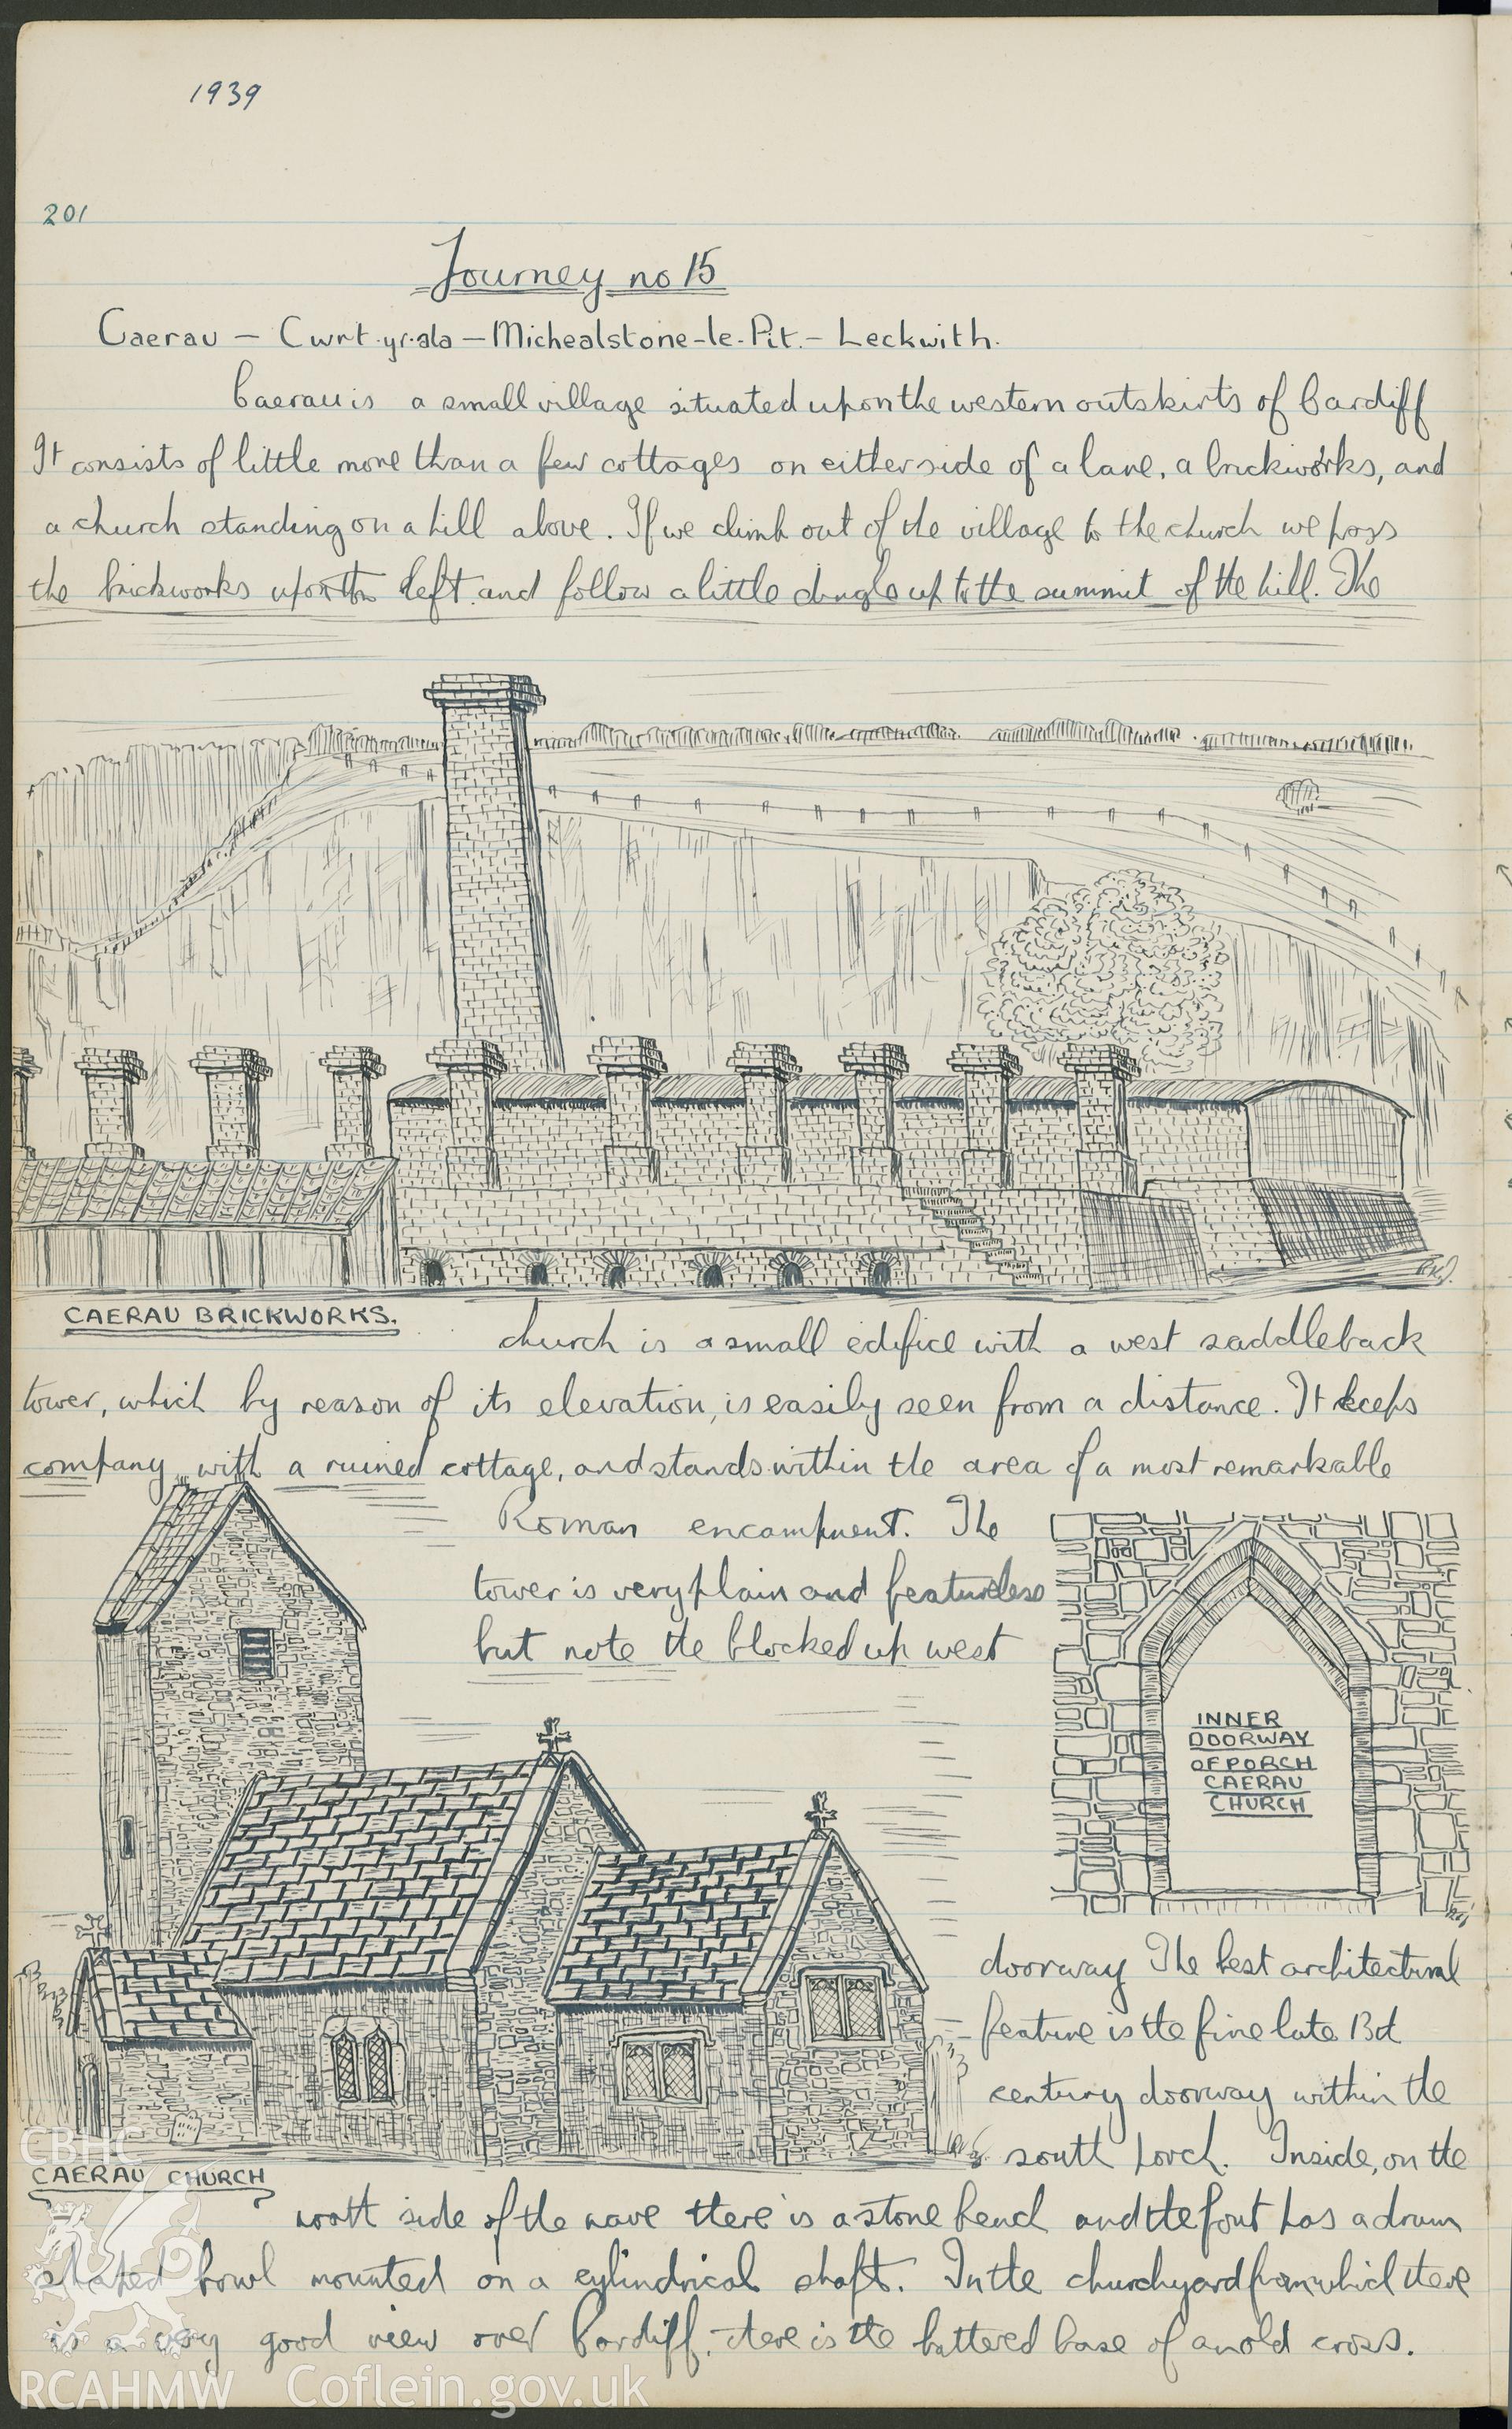 1939
201
Journey no 15
Caerau - Cwrt-yr-ala - Michealstone-le-Pit. - Leckwith.
Caerau is a small village situated upon the western outskirts of Cardiff
It consists of little more than a few cottages on either side of a lane, a brickworks, and
a church standing on a hill above. If we climb out of the village to the church we pass
the brickworks upon the left and follow a little dingle up to the summit of the hill. The
CAERAU BRICKWORKS.
church is a small edifice with a west saddleback
tower, which by reason of its elevation, is easily seen from a distance. It keeps
company with a ruined cottage, and stands within the area of a most remarkable
Roman encampment. The
tower is very plain and featureless
but note the blocked up west
INNER
DOORWAY
OF PORCH
CAERAU
CHURCH
doorway The best architectural
feature is the fine late 13th
century doorway within the
south porch. Inside, on the
CAERAU CHURCH
north side of the nave there is a stone bench and the font has a drum
shaped bowl mounted on a cylindrical shaft. In the churchyard from which there
is a very good view over Cardiff, there is the battered base of an old cross.
CBHC
RCAHMW Coflein.gov.uk